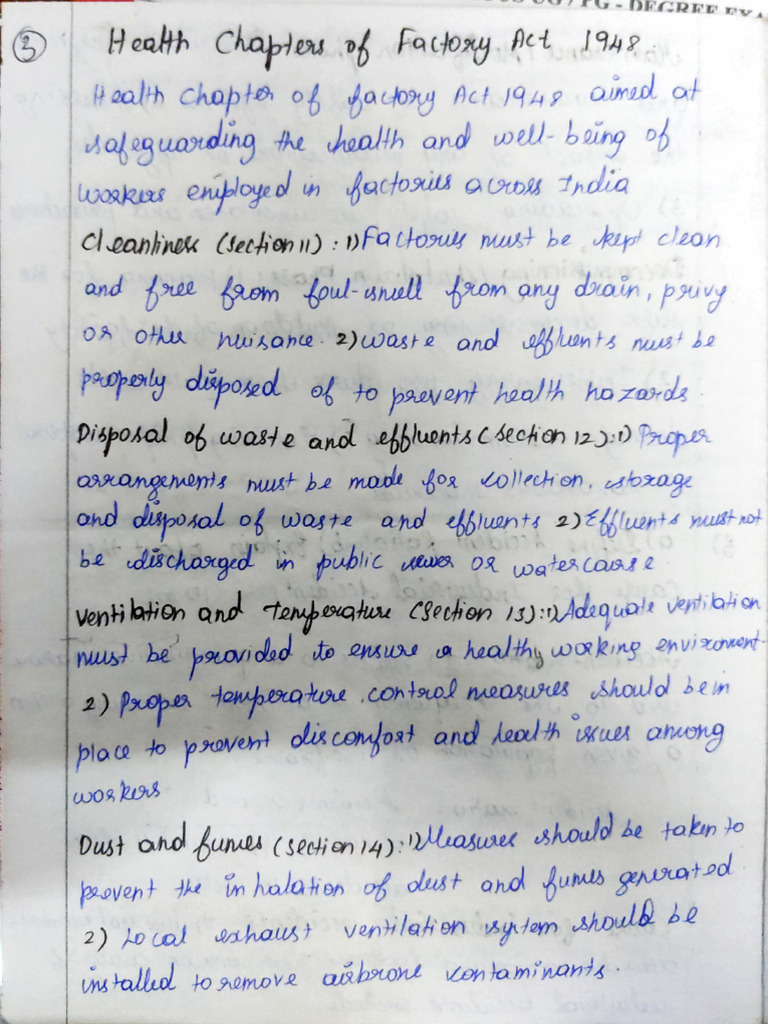 PG - DEGREE EXA
3 Health Chapters of Factory Act 1948.
Health Chapter of factory Act 1948 aimed at
safeguarding the health and well-being of
workers employed in factories across India
Cleanliness (section 11) : 1) Factories must be kept clean
and free from foul-smell from any drain, privy
or other nuisance. 2) waste and effluents must be
properly disposed of to prevent health hazards.
Disposal of waste and effluents (section 12) : 1) Proper
arrangements must be made for collection, storage
and disposal of waste and effluents 2) Effluents must not
be discharged in public sewer or watercourse
ventilation and temperature (section 13) : 1) Adequate ventilation
must be provided to ensure a healthy working environment.
2) Proper temperature control measures should be in
place to prevent discomfort and health issues among
workers.
Dust and fumes (section 14) : 1) Measures should be taken to
prevent the inhalation of dust and fumes generated.
2) Local exhaust ventilation system should be
installed to remove airbrone contaminants.